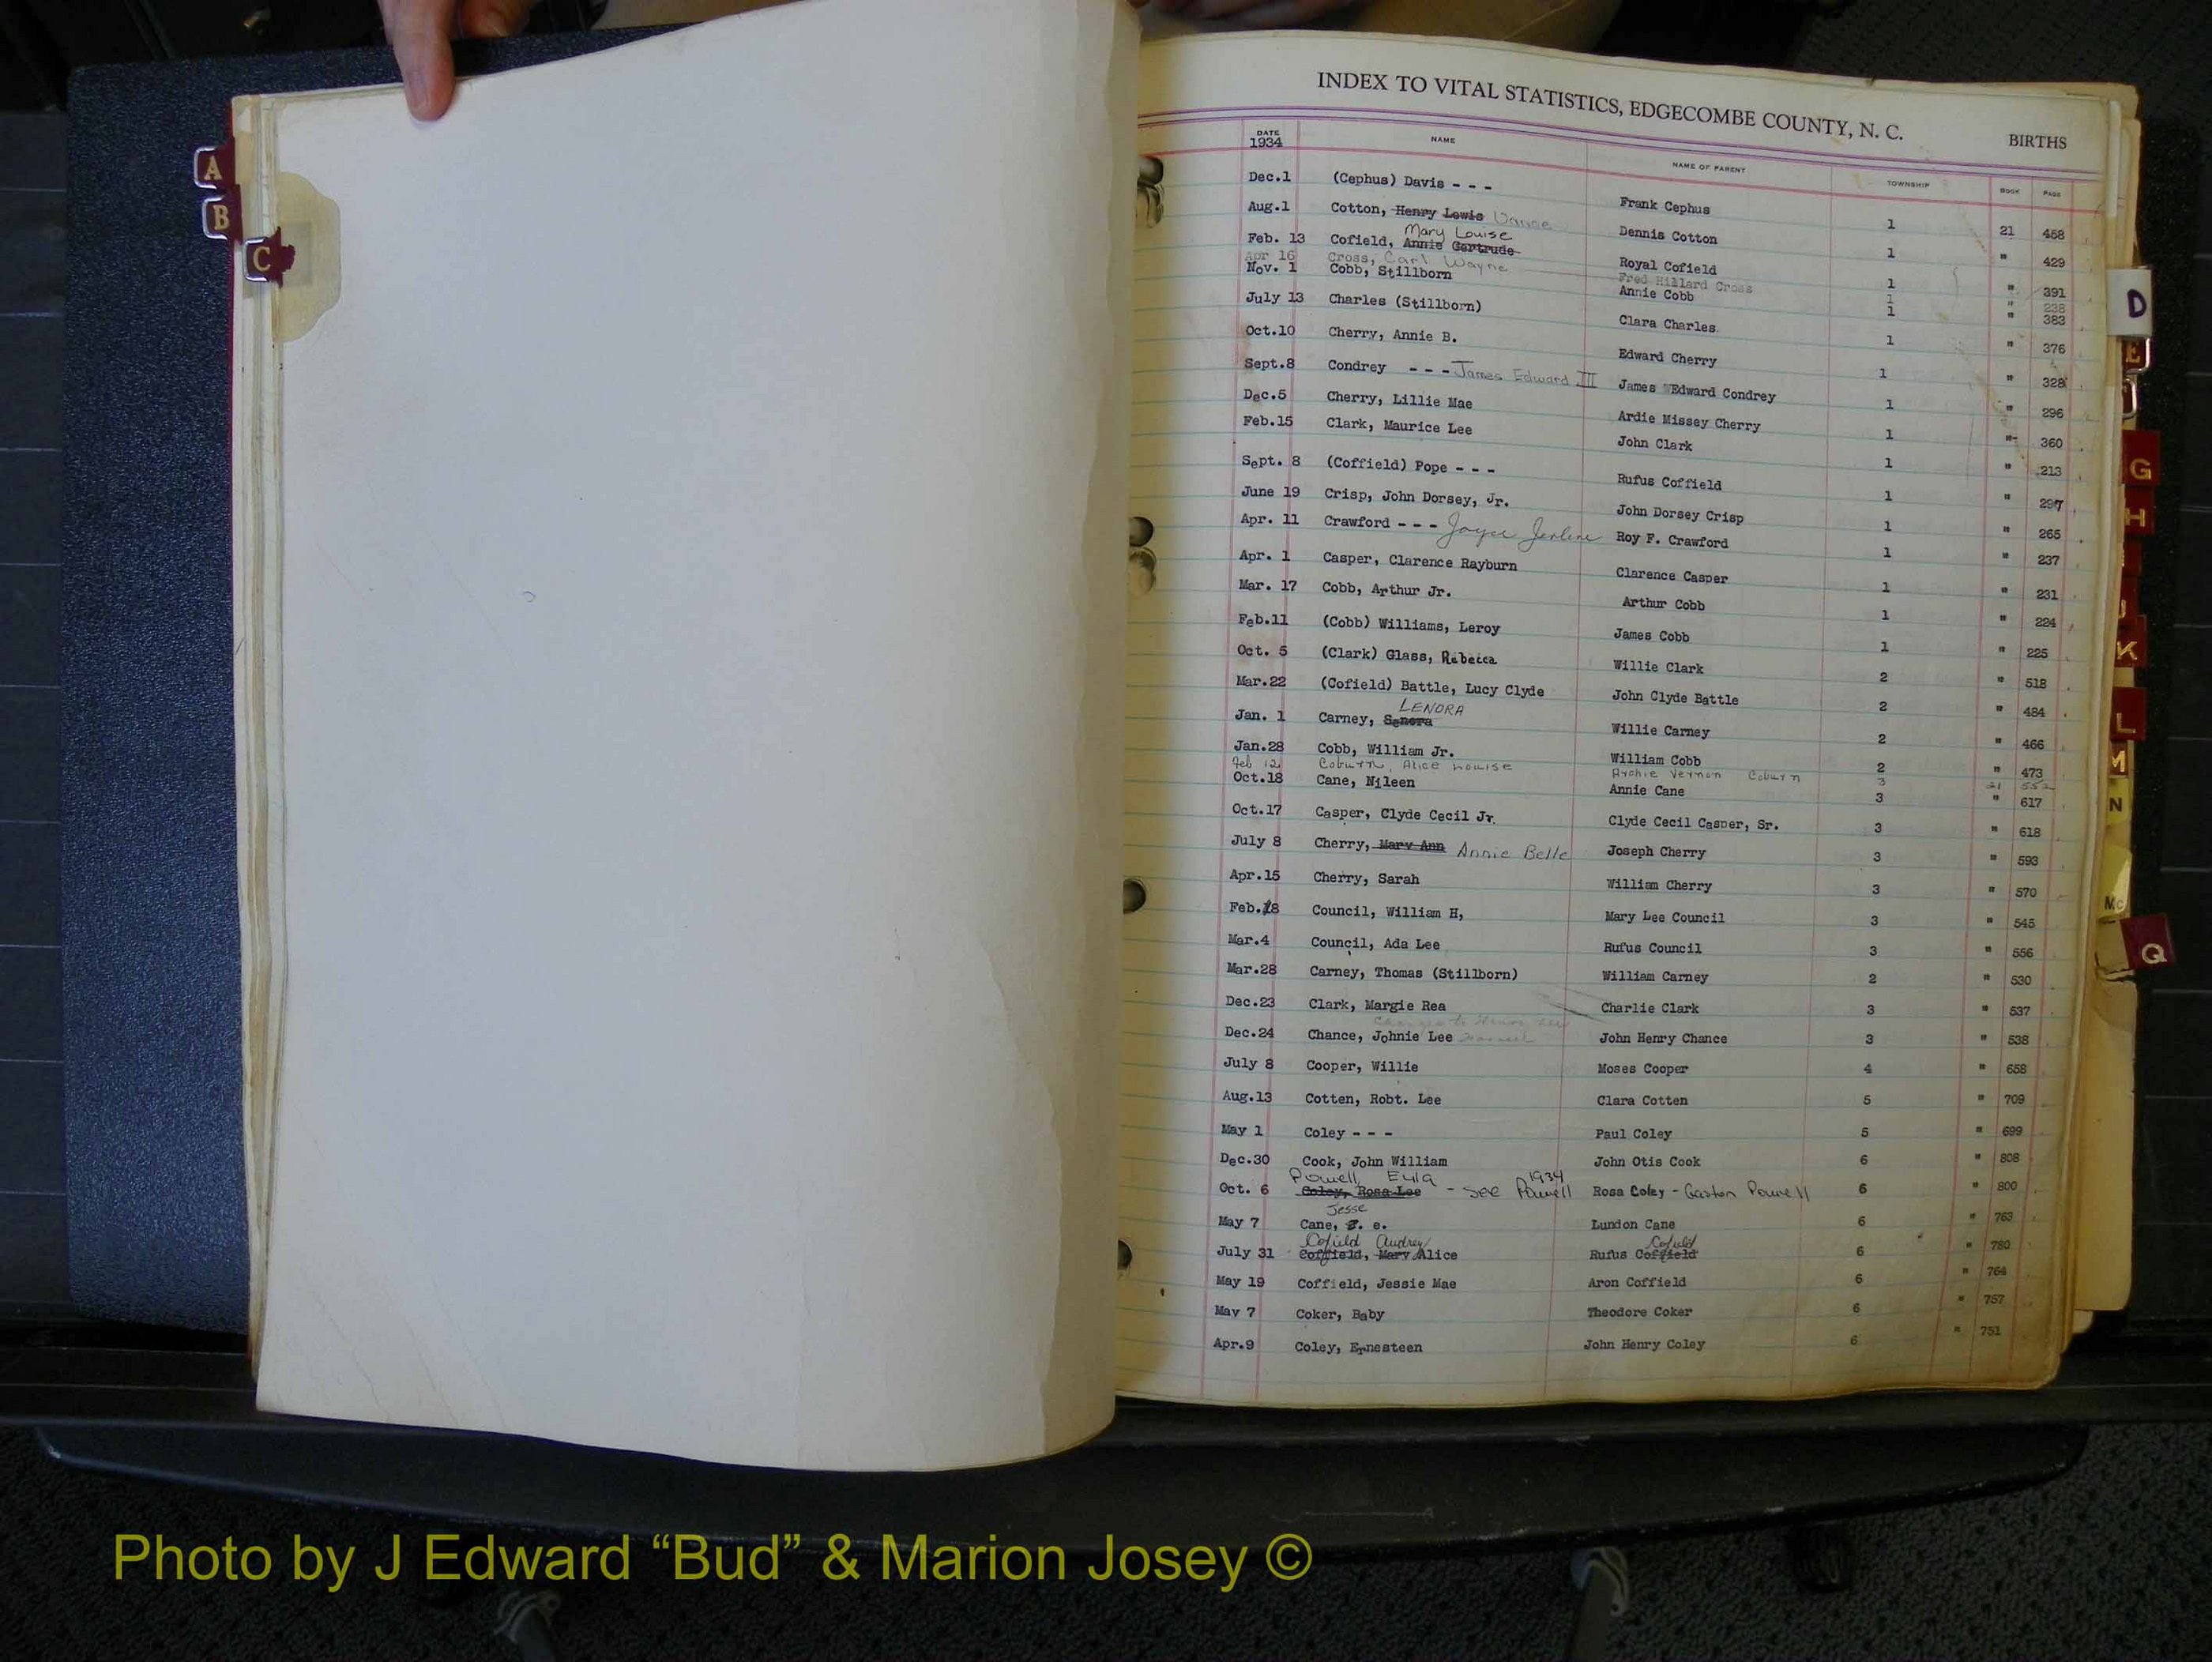 INDEX TO VITAL STATISTICS, EDGECOMBE COUNTY, N. C. BIRTHS
DATE 1934 NAME NAME OF PARENT TOWNSHIP BOOK PAGE
Dec.1 (Cephus) Davis - - - Frank Cephus 1 21 458
Aug.1 Cotton, Henry Lewis Dennis Cotton 1 " 429
Mary Louise
Feb. 13 Cofield, Annie Gertrude Royal Cofield 1 " 391
Apr 16 Cross, Carl Wayne Fred Hillard Cross 1 " 238
Nov. 1 Cobb, Stillborn Annie Cobb 1 " 383
July 13 Charles (Stillborn) Clara Charles 1 " 376
Oct.10 Cherry, Annie B. Edward Cherry 1 " 328
Sept.8 Condrey - - - James Edward III James Edward Condrey 1 " 296
Dec.5 Cherry, Lillie Mae Ardie Missey Cherry 1 " 360
Feb.15 Clark, Maurice Lee John Clark 1 " 213
Sept. 8 (Coffield) Pope - - - Rufus Coffield 1 " 297
June 19 Crisp, John Dorsey, Jr. John Dorsey Crisp 1 " 265
Apr. 11 Crawford - - - Joyce Jerlene Roy F. Crawford 1 " 237
Apr. 1 Casper, Clarence Rayburn Clarence Casper 1 " 231
Mar. 17 Cobb, Arthur Jr. Arthur Cobb 1 " 224
Feb.11 (Cobb) Williams, Leroy James Cobb 1 " 225
Oct. 5 (Clark) Glass, Rebecca Willie Clark 2 " 518
Mar.22 (Cofield) Battle, Lucy Clyde John Clyde Battle 2 " 484
LENORA
Jan. 1 Carney, Senora Willie Carney 2 " 466
Jan.28 Cobb, William Jr. William Cobb 2 " 473
Feb 12 Coburn, Alice Louise Archie Vernon Coburn 3 21 552
Oct.18 Cane, Nileen Annie Cane 3 " 617
Oct.17 Casper, Clyde Cecil Jr. Clyde Cecil Casper, Sr. 3 " 618
July 8 Cherry, Mary Ann Annie Belle Joseph Cherry 3 " 593
Apr.15 Cherry, Sarah William Cherry 3 " 570
Feb.18 Council, William H, Mary Lee Council 3 " 545
Mar.4 Council, Ada Lee Rufus Council 3 " 556
Mar.28 Carney, Thomas (Stillborn) William Carney 2 " 530
Dec.23 Clark, Margie Rea Charlie Clark 3 " 537
Dec.24 Chance, Johnie Lee John Henry Chance 3 " 538
July 8 Cooper, Willie Moses Cooper 4 " 658
Aug.13 Cotten, Robt. Lee Clara Cotten 5 " 709
May 1 Coley - - - Paul Coley 5 " 699
Dec.30 Cook, John William John Otis Cook 6 " 808
Powell, Eula 1934
Oct. 6 Coley, Rosa Lee - See Powell Rosa Coley - Gaston Powell 6 " 800
Jesse
May 7 Cane, e. Lundon Cane 6 " 763
Cofield Audrey Cofield
July 31 Coffield, Mary Alice Rufus Coffield 6 " 780
May 19 Coffield, Jessie Mae Aron Coffield 6 " 764
May 7 Coker, Baby Theodore Coker 6 " 757
Apr.9 Coley, Ernesteen John Henry Coley 6 " 751
A
B
C
D
E
G
H
K
L
M
N
Mc
Q
Photo by J Edward “Bud” & Marion Josey ©